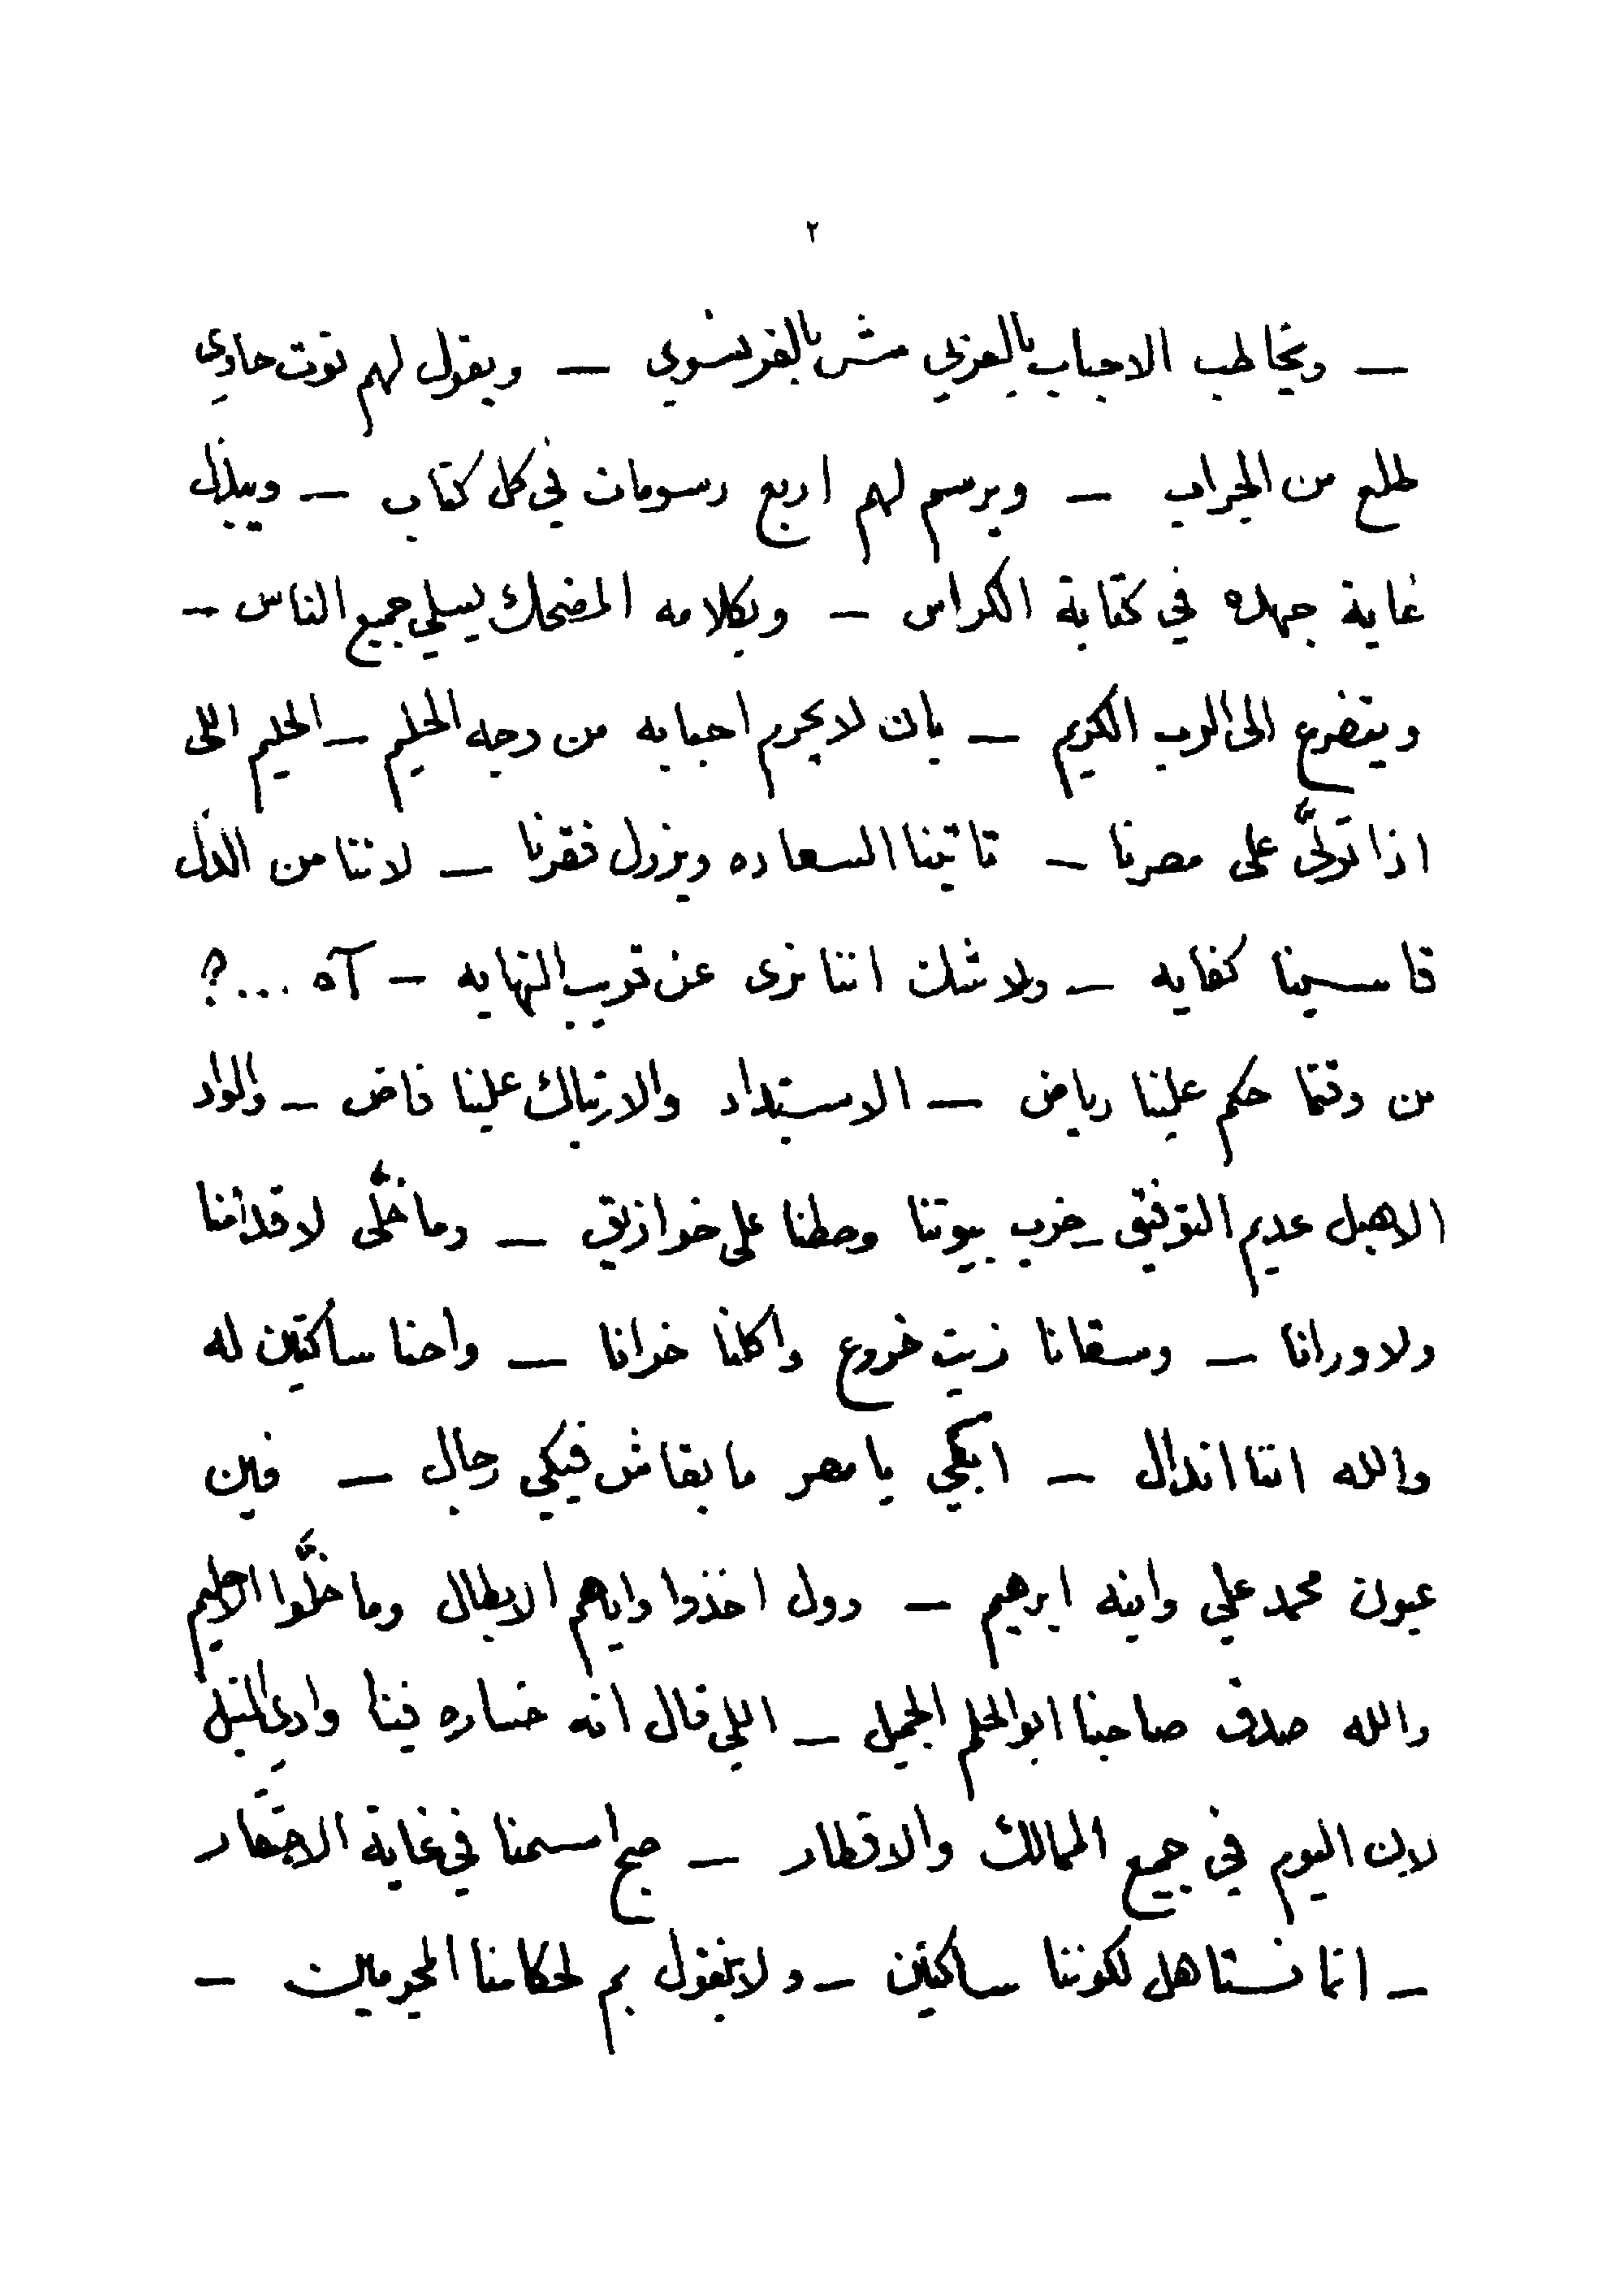 ٢
— ويخاطب الاحباب بالعربي مش بالفرنسوي — ويقول لهم توت حاوي
طلع من الجراب — ويرسم لهم اربع رسومات في كل كتاب — ويبذل
غاية جهده في كتابة الكراس — وبكلامه المضحك يسلي جميع الناس —
ويتضرع الى الرب الكريم — بان لا يحرم احبابه من وجه الحليم — الحليم اللى
اذا تولَّى على مصرنا — تاتينا السعاده ويزول فقرنا — لاننا من الذل
قاسينا كفايه — ولا شك اننا نرى عن قريب النهايه — آه ...؟
من وقتما حكم علينا رياض — الاستبداد والارتباك علينا فاض — والواد
الاهبل عديم التوفيق — خرب بيوتنا وحطنا على خوازيق — وما خلَّى لا قدامنا
ولا ورانا — وسقانا زيت خروع واكلنا خرانا — واحنا ساكتين له
والله اننا اندال — ابكي يا مصر ما بقاش فيكي رجال — فين
عيون محمد علي وابنه ابرهيم — دول اخذوا واياهم الابطال وما خلَّوا الا البهيم
والله صدق صاحبنا ابو الحلم الجميل — اللي قال انه خساره فينا وادي النيل
لان اليوم في جميع الممالك والاقطار — صبح اسمنا في غاية الاحتقار
— انما نستاهل لكوننا ساكتين — ولا نقول بم لحكامنا المجرمين —